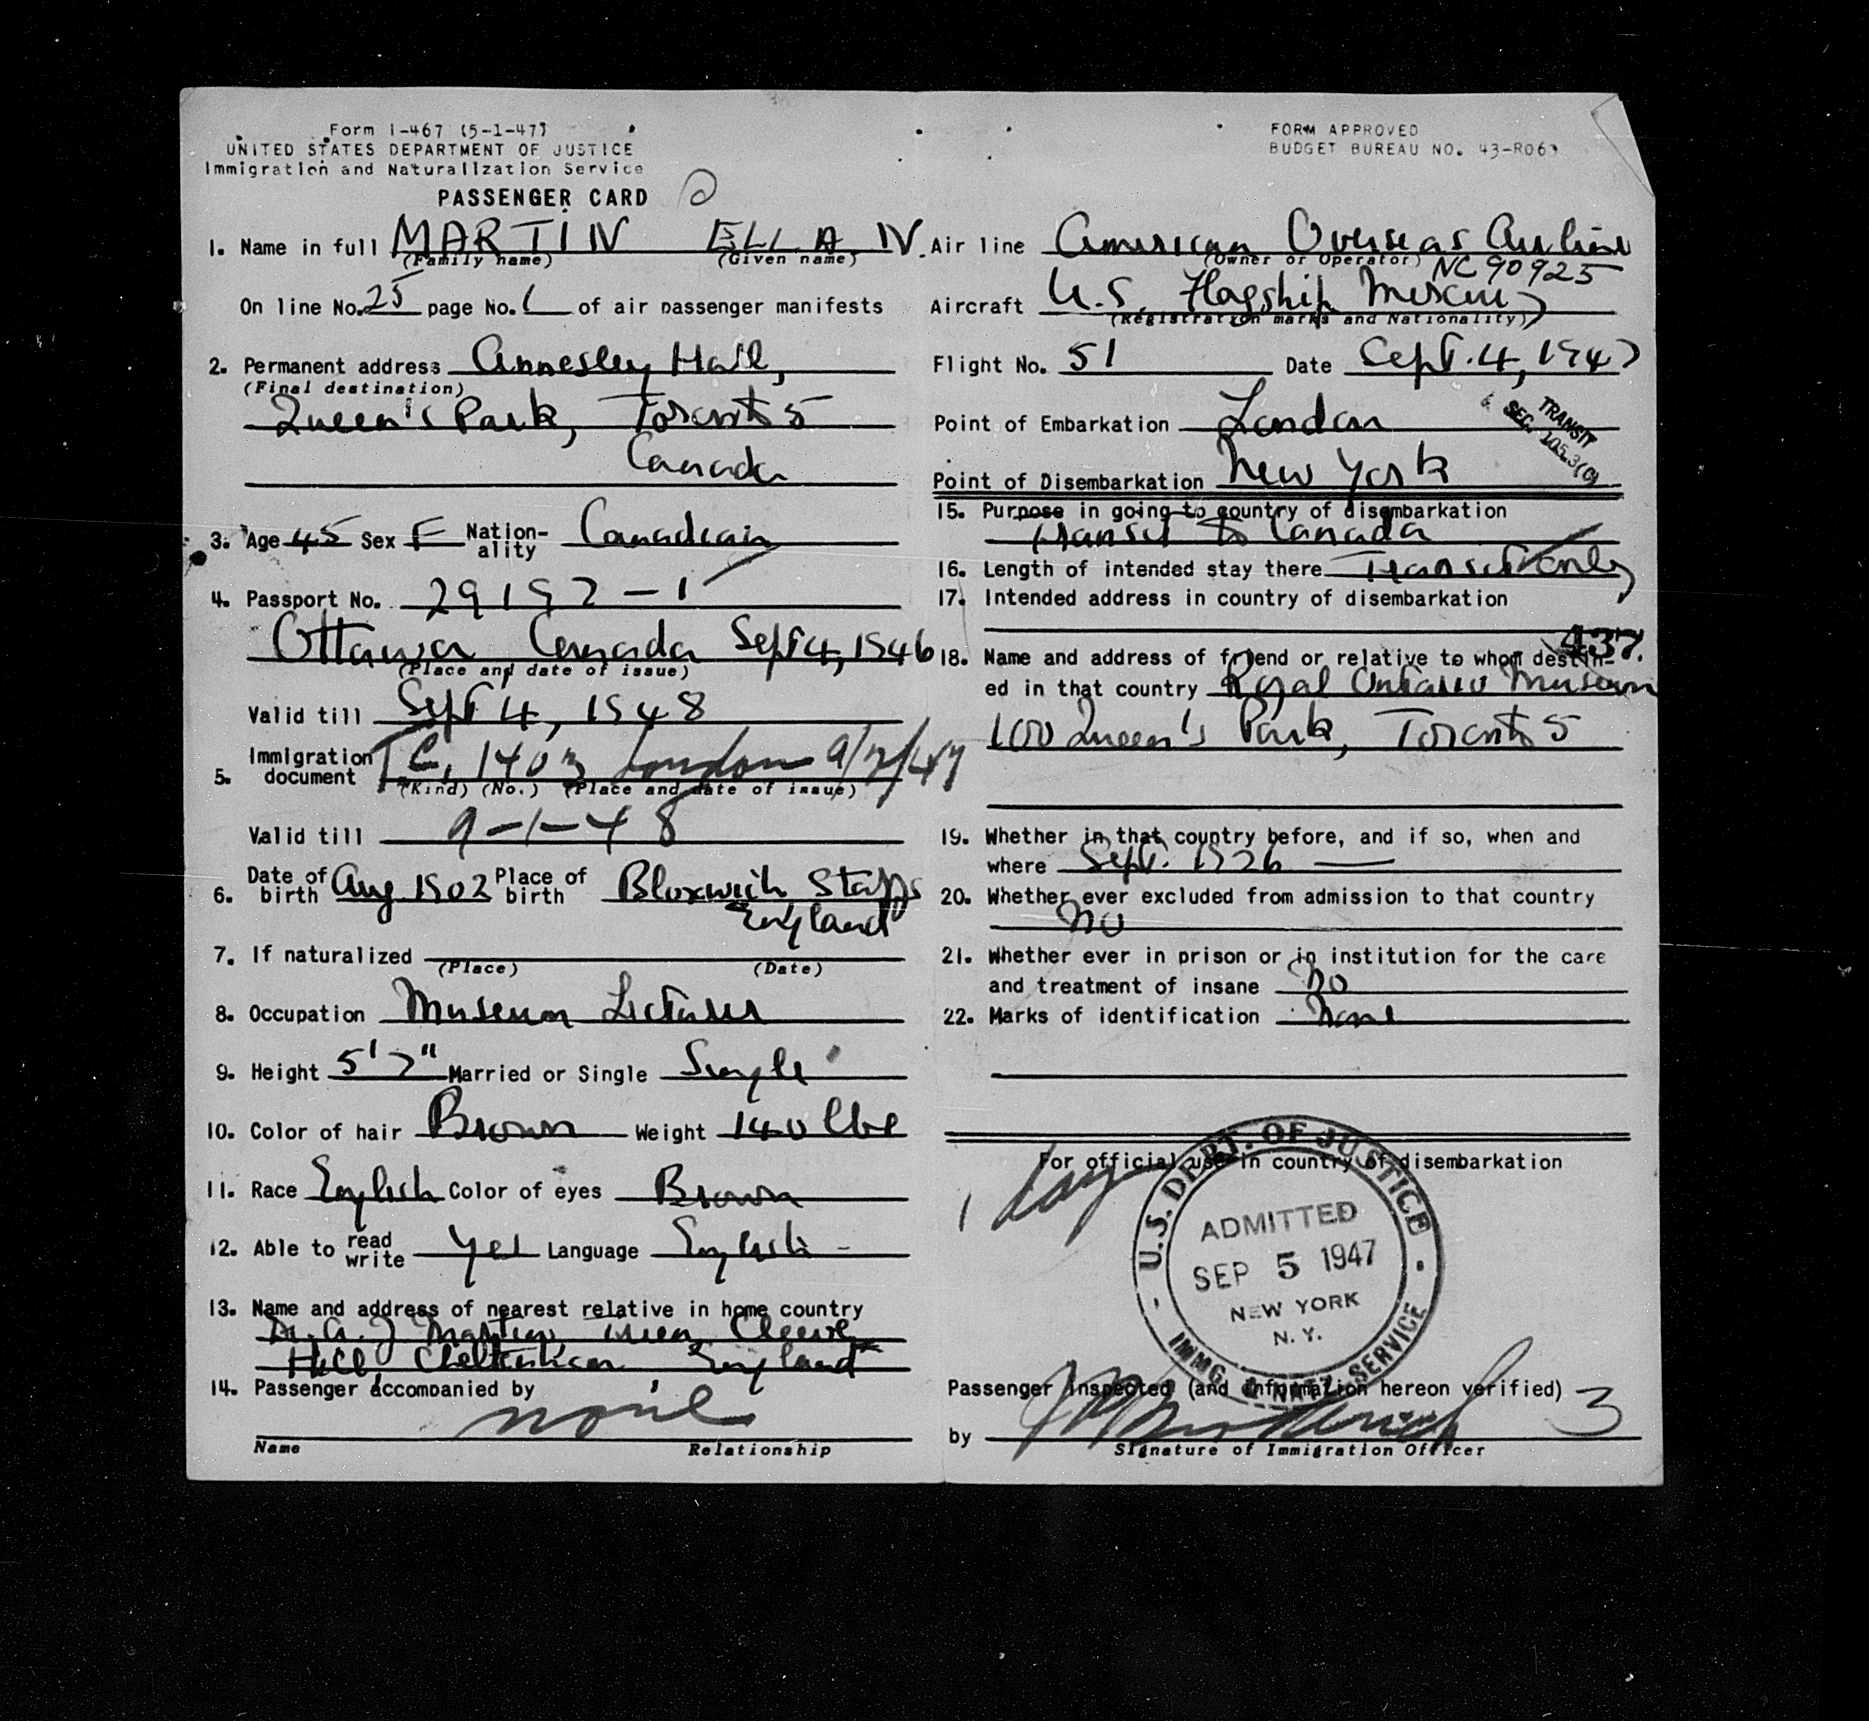 Form I-467 (5-1-47)
UNITED STATES DEPARTMENT OF JUSTICE
Immigration and Naturalization Service
PASSENGER CARD
1. Name in full MARTIN ELLA N.
(Family name) (Given name)
On line No. 25 page No. 1 of air passenger manifests
2. Permanent address Annesley Hall,
(Final destination)
Queen's Park, Toronto 5
Canada
3. Age 45 Sex F Nation-ality Canadian
4. Passport No. 29192-1
Ottawa Canada Sept 4, 1946
(Place and date of issue)
Valid till Sept 4, 1948
5. Immigration document T.C. 1403 London 9/2/47
(Kind) (No.) (Place and date of issue)
Valid till 9-1-48
6. Date of birth Aug 1902 Place of birth Bloxwich Staffs
England
7. If naturalized
(Place) (Date)
8. Occupation Museum Lecturer
9. Height 5'7" Married or Single Single
10. Color of hair Brown Weight 140 lbs
11. Race English Color of eyes Brown
12. Able to read write Yes Language English
13. Name and address of nearest relative in home country
Martin, Cleeve
Hill Cheltenham England
14. Passenger accompanied by
none
Name Relationship
FORM APPROVED
BUDGET BUREAU NO. 43-R063
Air line American Overseas Airline
(Owner or Operator) NC 90925
Aircraft U.S. Flagship Mercury
(Registration marks and Nationality)
Flight No. 51 Date Sept. 4, 1947
Point of Embarkation London
TRANSIT
SEC. 105.3(C)
Point of Disembarkation New York
15. Purpose in going to country of disembarkation
transit to Canada
16. Length of intended stay there Transit only
17. Intended address in country of disembarkation
437.
18. Name and address of friend or relative to whom destin-
ed in that country Royal Ontario Museum
100 Queen's Park, Toronto 5
19. Whether in that country before, and if so, when and
where Sept. 1926
20. Whether ever excluded from admission to that country
No
21. Whether ever in prison or in institution for the care
and treatment of insane No
22. Marks of identification None
For official use in country of disembarkation
1 day
U.S. DEPT. OF JUSTICE
ADMITTED
SEP 5 1947
NEW YORK
N. Y.
IMMG. & NATZ. SERVICE
Passenger inspected (and information hereon verified) 3
by
Signature of Immigration Officer